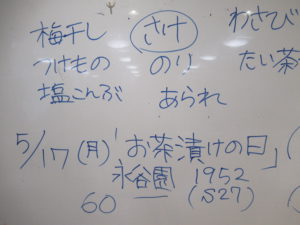 梅干し さけ わさび
つけもの のり たい茶
塩こんぶ あられ
5/17(月)「お茶漬けの日」(
永谷園 1952
60 (S27) (